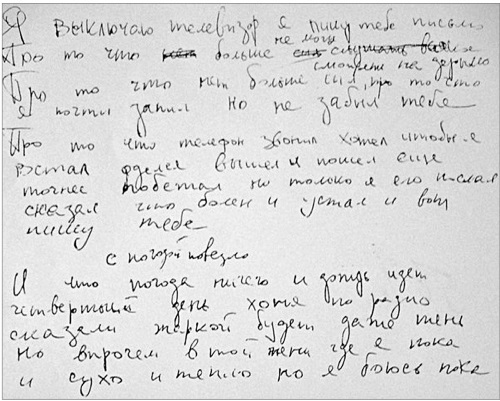 Я выключаю телевизор я пишу тебе письмо
не могу
Про то что больше
смотреть на дерьмо
Про то что нет больше сил про то что
я почти запил но не забыл тебе
Про то что телефон звонил хотел чтобы я
встал оделся вышел и пошел еще
точнее побежал но только я его послал
сказал что болен и устал и
пишу тебе
с погодой повезло
И что погода ничего и дождь идет
четвертый день хотя по радио
сказали жаркой будет даже тень
но впрочем в той тени где я пока
и сухо и тепло но я боюсь пока